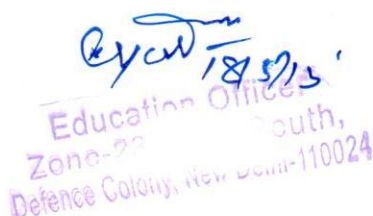 18/5/15
Education Officer
Zone-23 South,
Defence Colony, New Delhi-110024